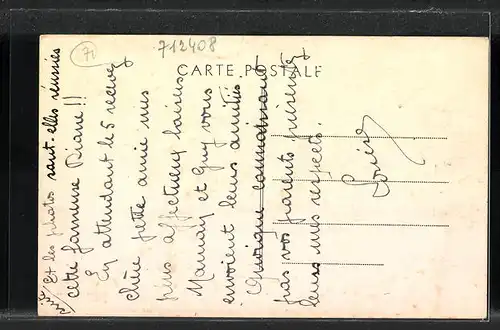 71
712408
CARTE POSTALE
Et les photos sont-elles réussies
cette fameuse Diane !!
En attendant les recevez
chère petite amie mes
plus affectueux baisers
Maman et Guy vous
envoient leurs amitiés
Quoique connaissant
pas vos parents, présentez
leurs mes respects.
Louise